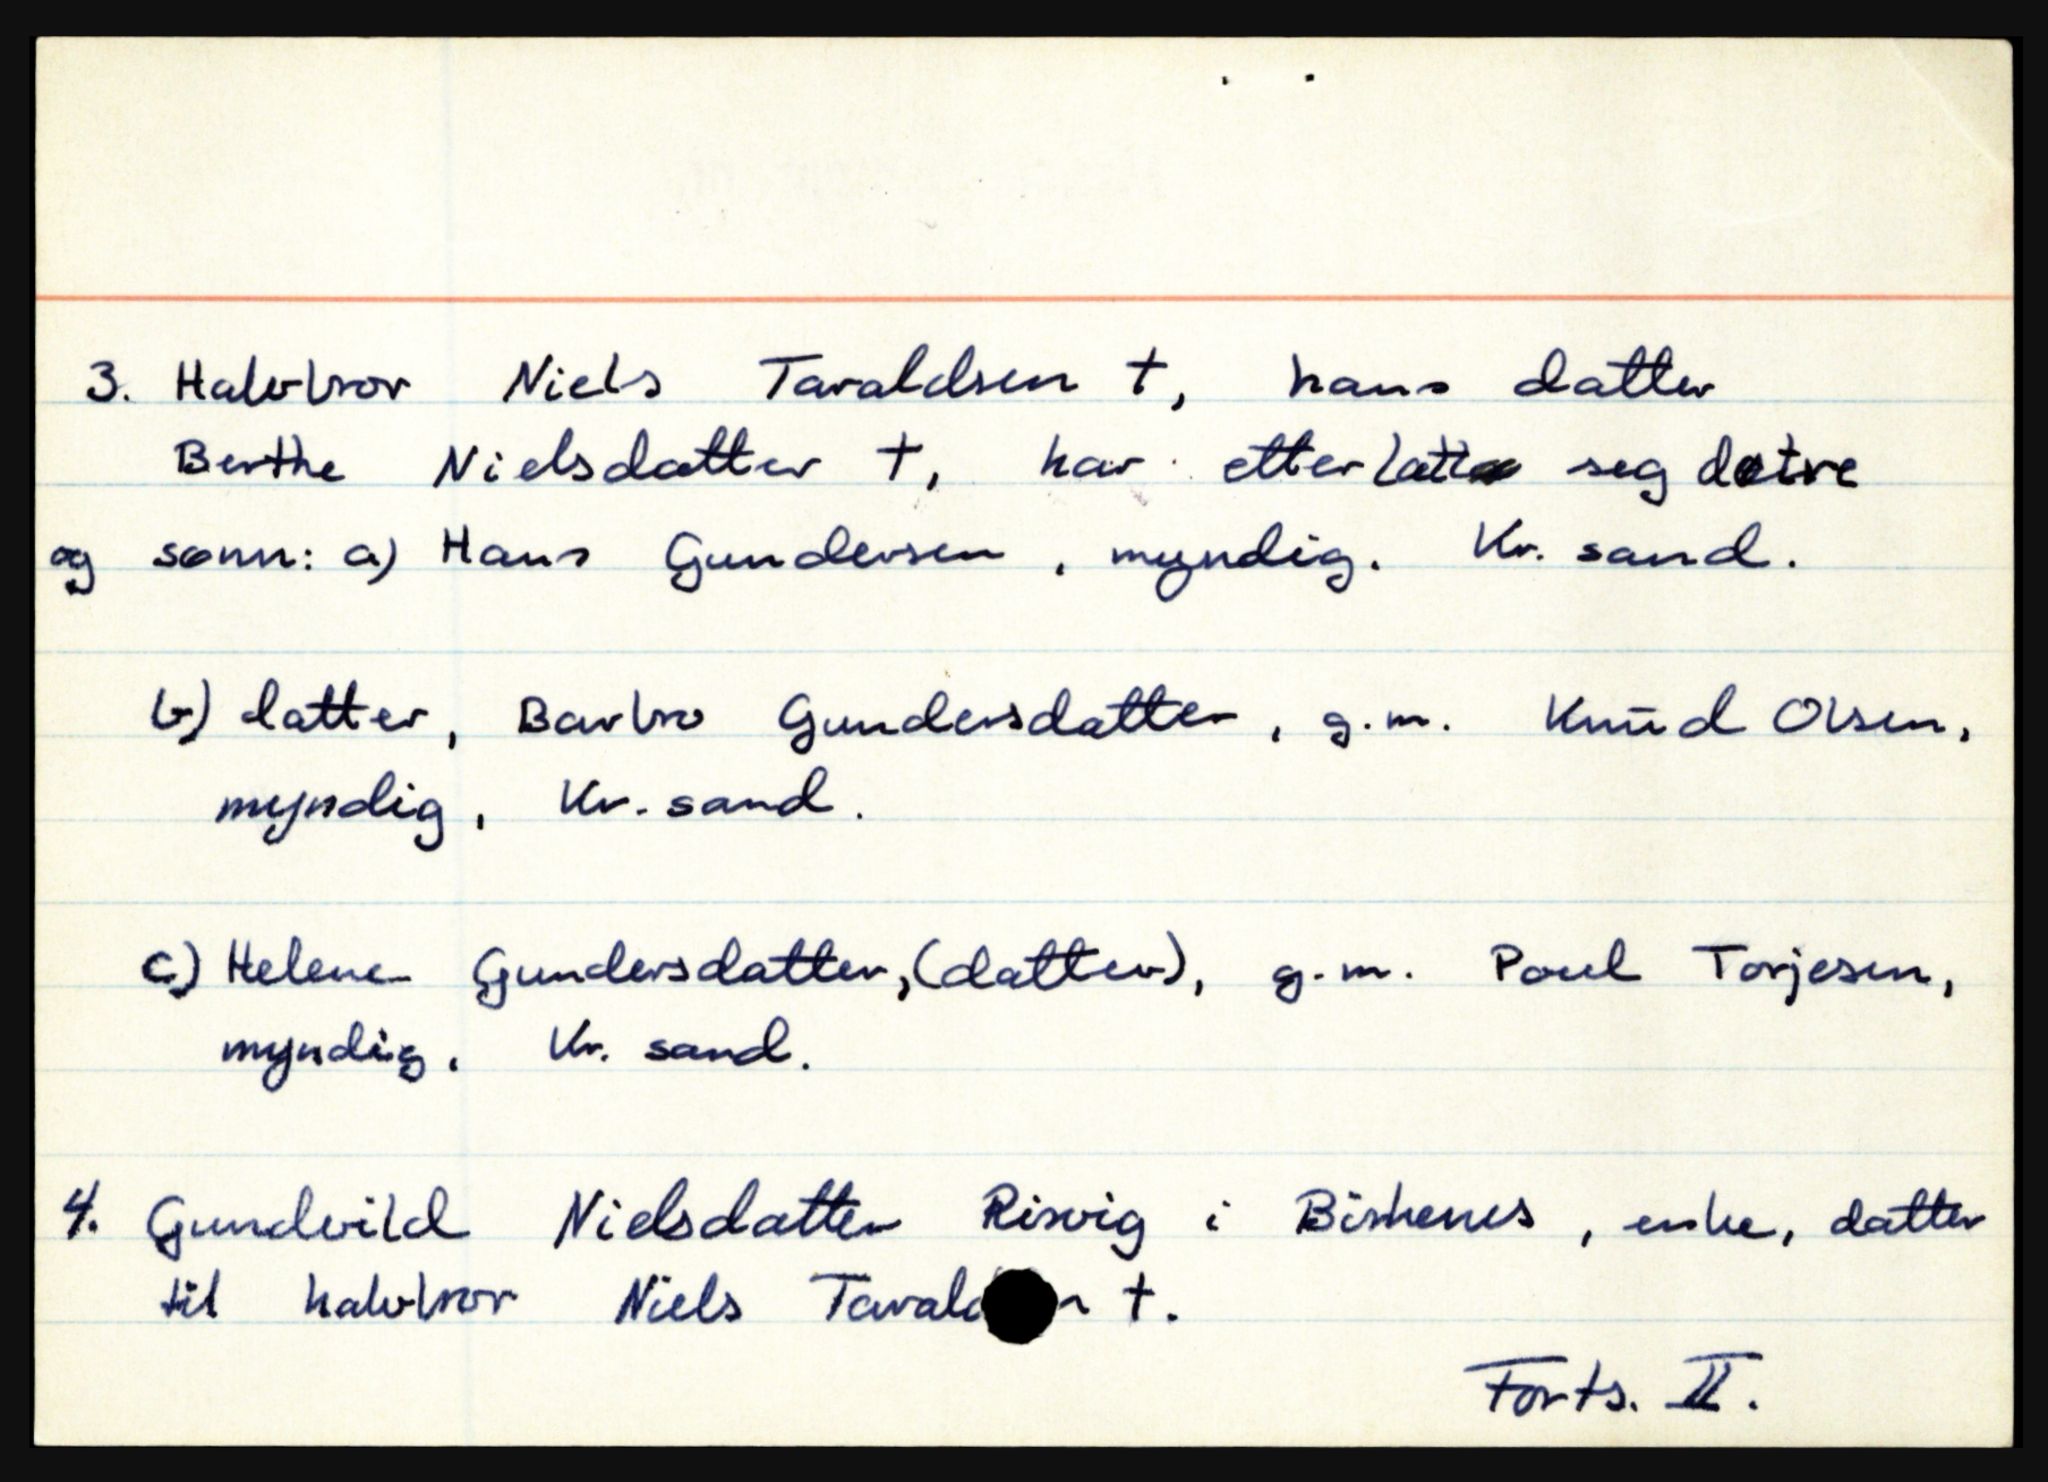 3. Halvbror Niels Taraldsen †, hans datter
Berthe Nielsdatter †, har etterlatt seg døtre
og sønn: a) Hans Gundersen, myndig. Kr. sand.
b) datter, Barbro Gundersdatter, g.m. Knūd Olsen,
myndig, Kr. sand.
c) Helene Gundersdatter, (datter), g.m. Poul Torjesen,
myndig. Kr. sand.
4. Gundvild Nielsdatter Risvig i Birkenes, enke, datter
til halvbror Niels †.
Forts. II.